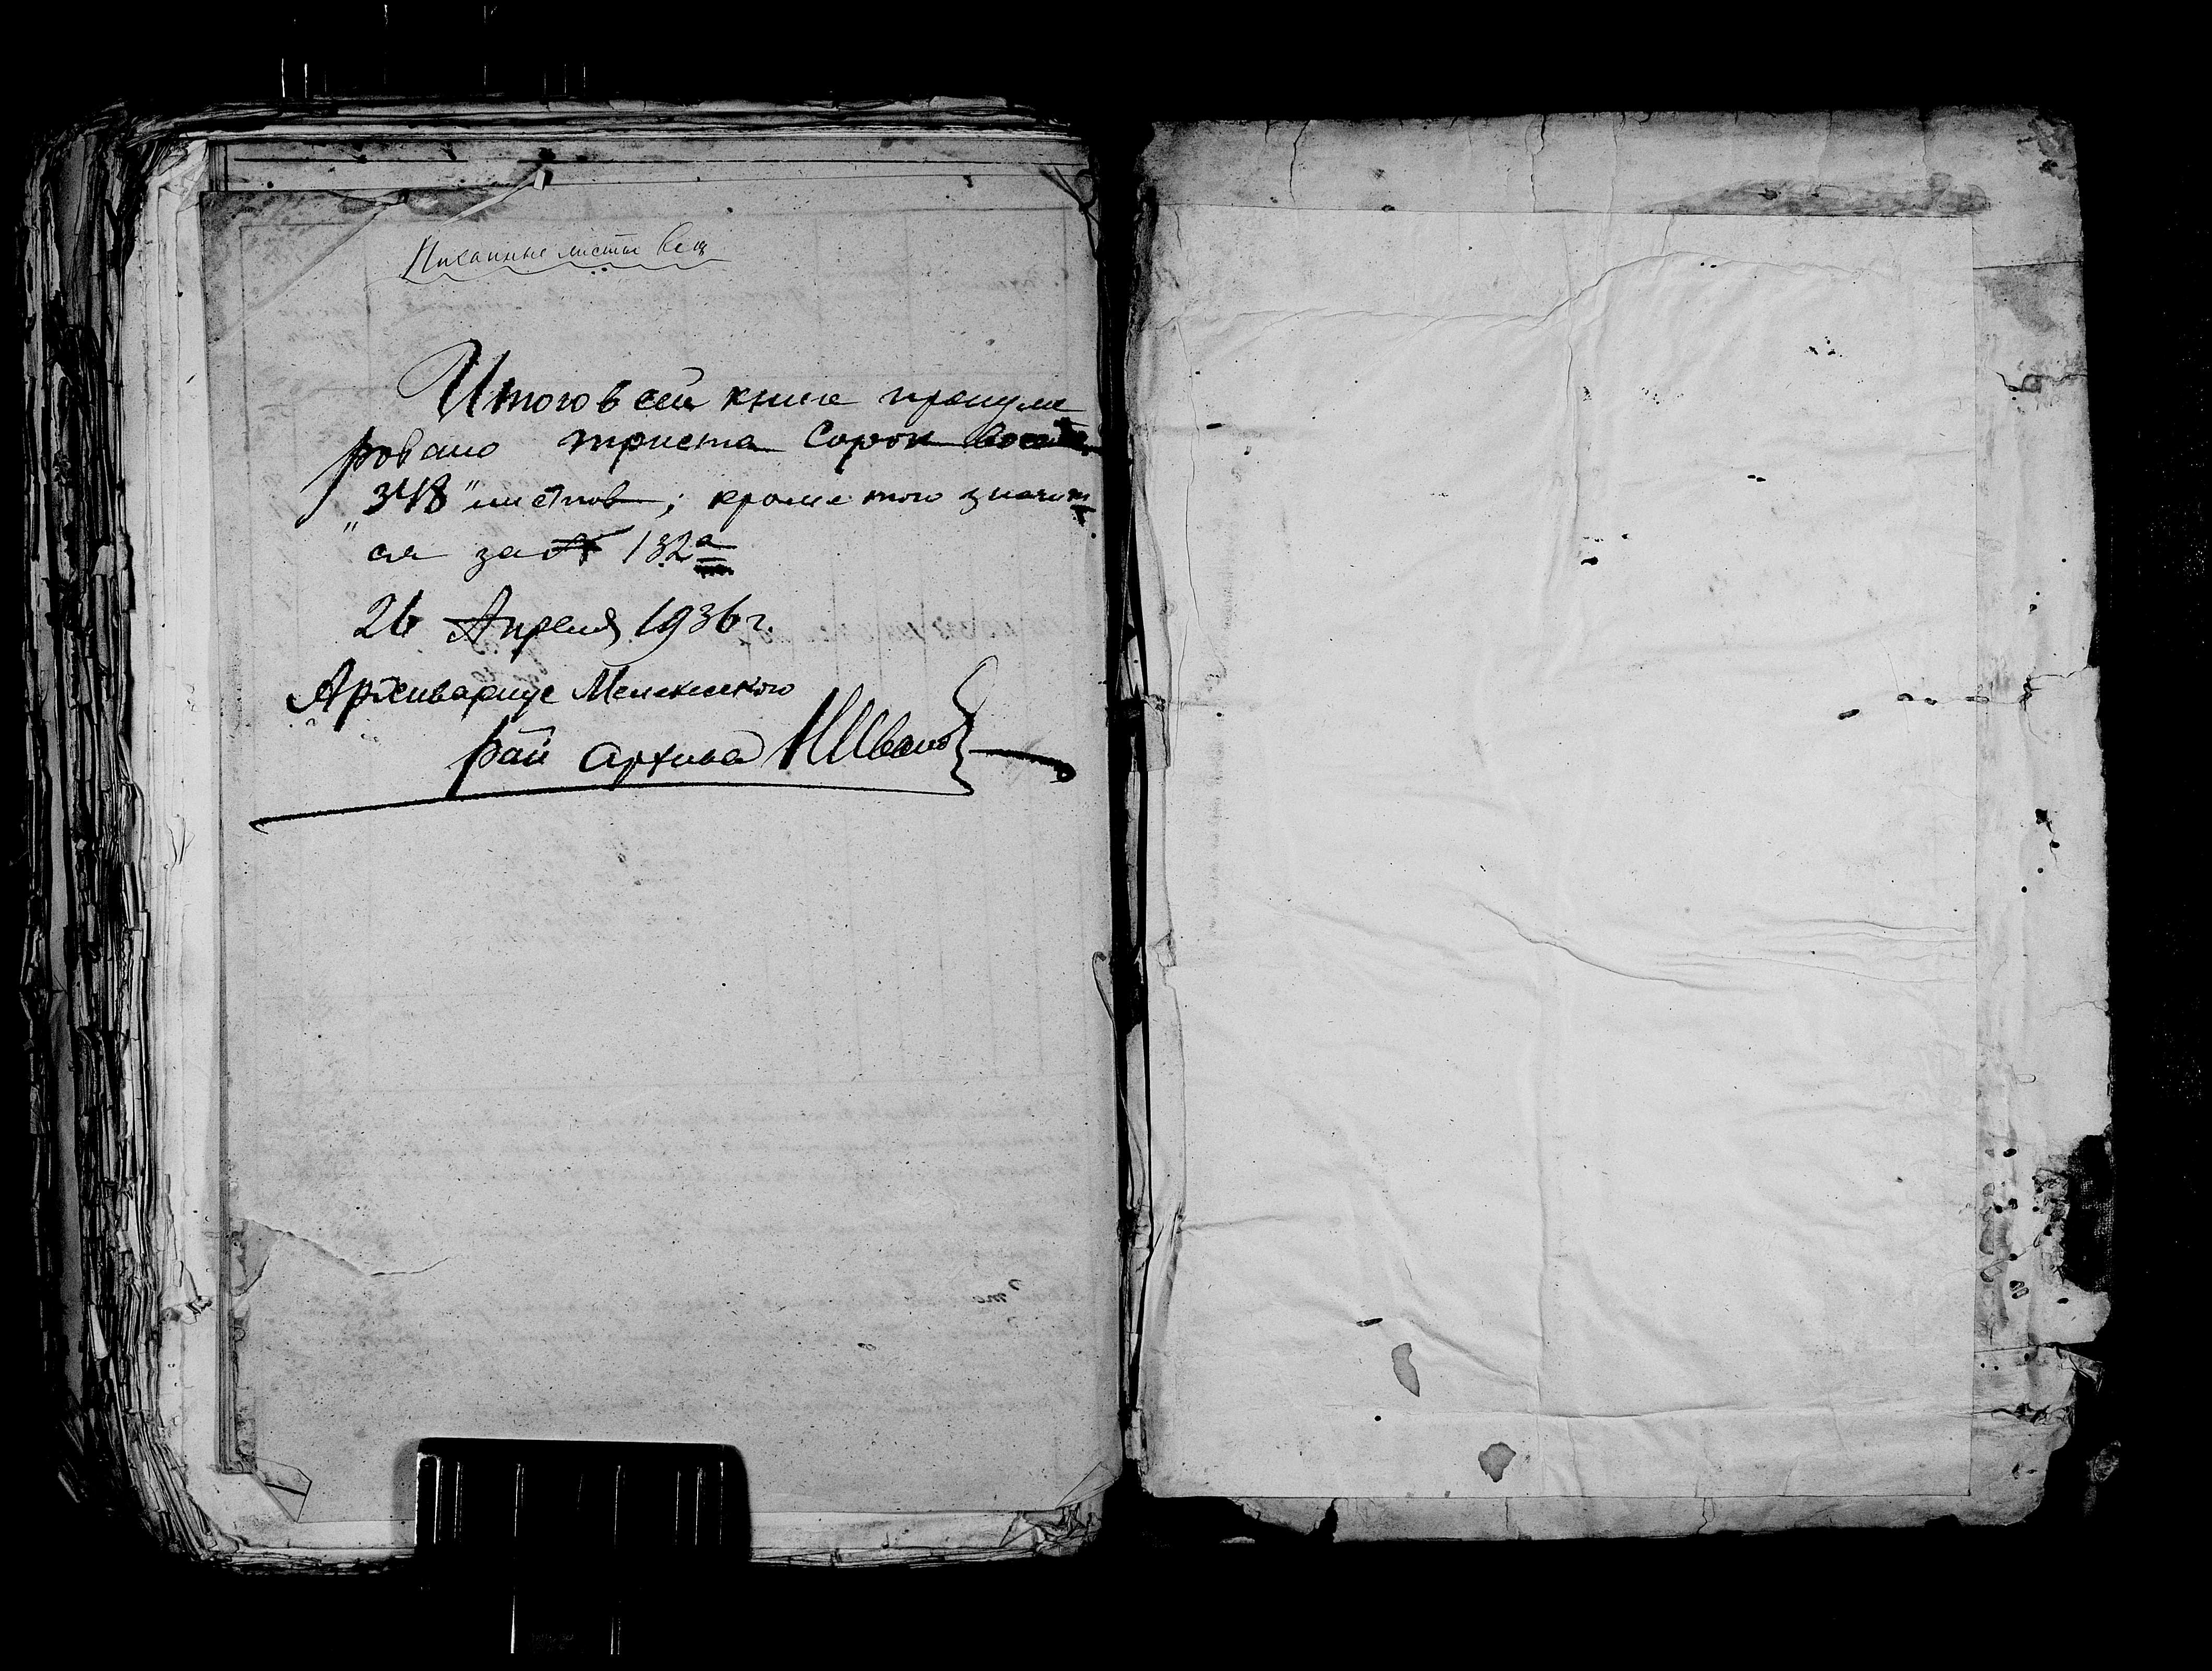 Писанные листы вещ
Итого в сей книге пронуме
ровано триста сорок восемь
"348" листов; кроме того значит
ся за № 132а
26 Апреля 1936 г.
Архивариус Мелекесского
рай архива Н Иванов